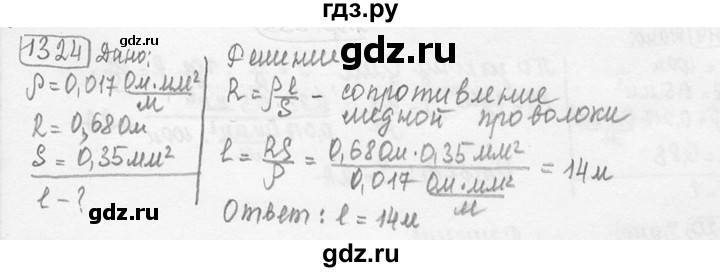 гдз.ру
1324 Дано:
ρ = 0,017 Ом·мм²/м
R = 0,68 Ом
S = 0,35 мм²
ℓ - ?
Решение
R = ρℓ/S - сопротивление
медной проволоки
ℓ = RS/ρ = 0,68 Ом · 0,35 мм² / 0,017 Ом·мм²/м = 14 м
Ответ: ℓ = 14 м
gdz.ru
gdz.ru